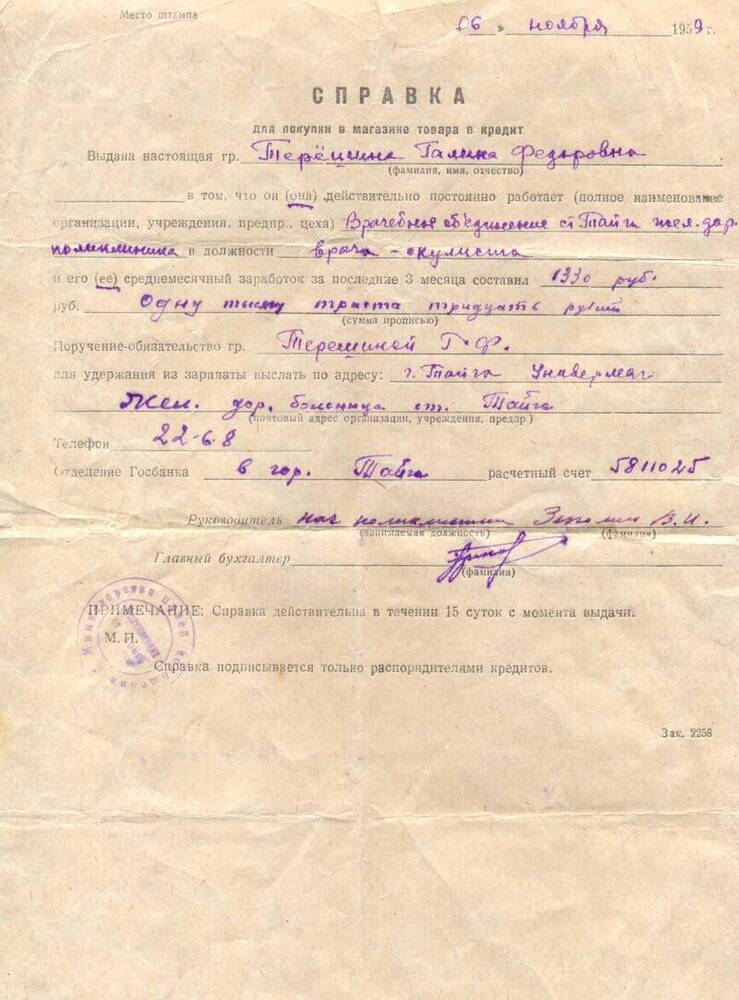 Место штампа
06 » ноября 1959 г.
СПРАВКА
для покупки в магазине товара в кредит
Выдана настоящая гр. Терёшина Галина Федоровна
(фамилия, имя, отчество)
в том, что он (она) действительно постоянно работает (полное наименование
организации, учреждения, предпр., цеха) Врачебное объединение ст Тайга жел. дор.
поликлиника в должности врача-окулиста
и его (ее) среднемесячный заработок за последние 3 месяца составил 1330 руб.
руб. Одну тысячу триста тридцать рублей
(сумма прописью)
Поручение-обязательство гр. Терешиной Г.Ф.
для удержания из зарплаты выслать по адресу: г. Тайга Универмаг
Жел. дор. больница ст. Тайга
(почтовый адрес организации, учреждения, предпр)
Телефон 22-6.8
Отделение Госбанка в гор. Тайга расчетный счет 5811025
Руководитель нач поликлиники В.И.
(занимаемая должность) (фамилия)
Главный бухгалтер
(фамилия)
ПРИМЕЧАНИЕ: Справка действительна в течении 15 суток с момента выдачи.
М. П.
Справка подписывается только распорядителями кредитов.
Министерство путей сообщения
Зак. 2258